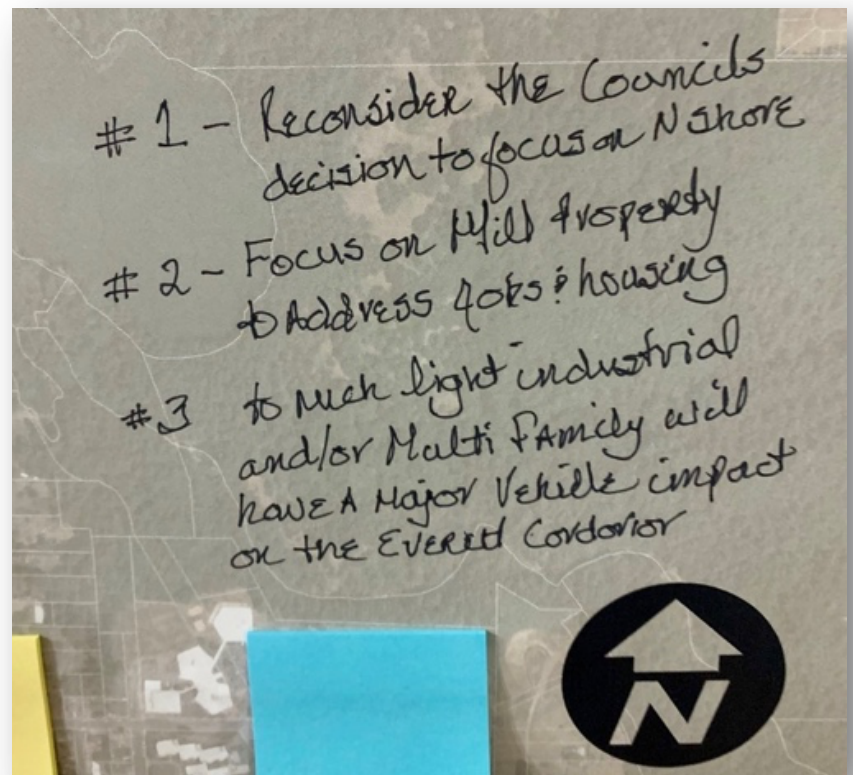 #1 - Reconsider the Councils
decision to focus on N Shore
#2 - Focus on Mill Property
to Address Jobs & housing
#3 to much light industrial
and/or Multi Family will
have A Major Vehicle impact
on the Everett Cordorior
N